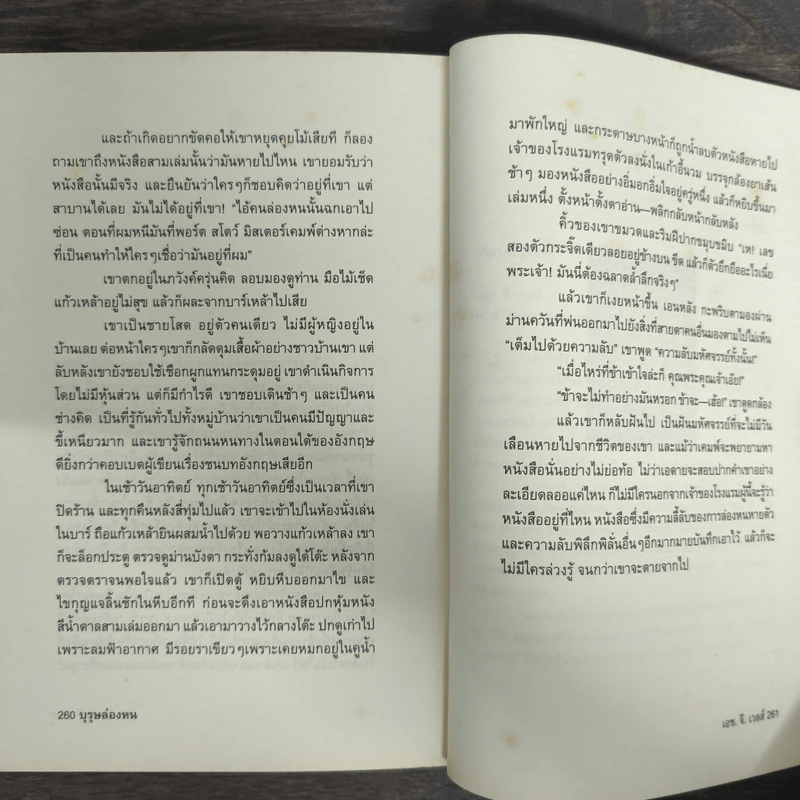 และถ้าเกิดอยากขัดคอให้เขาหยุดคุยโม้เสียที ก็ลอง
ถามเขาถึงหนังสือสามเล่มนั้นว่ามันหายไปไหน เขายอมรับว่า
หนังสือนั้นมีจริง และยืนยันว่าใครๆก็ชอบคิดว่าอยู่ที่เขา แต่
สาบานได้เลย มันไม่ได้อยู่ที่เขา! “ไอ้คนล่องหนนั้นฉกเอาไป
ซ่อน ตอนที่ผมหนีมันที่พอร์ต สโตว์ มิสเตอร์เคมพ์ต่างหากล่ะ
ที่เป็นคนทำให้ใครๆเชื่อว่ามันอยู่ที่ผม”
เขาตกอยู่ในภวังค์ครุ่นคิด ลอบมองดูท่าน มือไม้เช็ด
แก้วเหล้าอยู่ไม่สุข แล้วก็ผละจากบาร์เหล้าไปเสีย
เขาเป็นชายโสด อยู่ตัวคนเดียว ไม่มีผู้หญิงอยู่ใน
บ้านเลย ต่อหน้าใครๆเขาก็กลัดดุมเสื้อผ้าอย่างชาวบ้านเขา แต่
ลับหลังเขายังชอบใช้เชือกผูกแทนกระดุมอยู่ เขาดำเนินกิจการ
โดยไม่มีหุ้นส่วน แต่ก็มีกำไรดี เขาชอบเดินช้าๆ และเป็นคน
ช่างคิด เป็นที่รู้กันทั่วไปทั้งหมู่บ้านว่าเขาเป็นคนมีปัญญาและ
ขี้เหนียวมาก และเขารู้จักถนนหนทางในตอนใต้ของอังกฤษ
ดียิ่งกว่าคอบเบตผู้เขียนเรื่องชนบทอังกฤษเสียอีก
ในเช้าวันอาทิตย์ ทุกเช้าวันอาทิตย์ซึ่งเป็นเวลาที่เขา
ปิดร้าน และทุกคืนหลังสี่ทุ่มไปแล้ว เขาจะเข้าไปในห้องนั่งเล่น
ในบาร์ ถือแก้วเหล้ายินผสมน้ำไปด้วย พอวางแก้วเหล้าลง เขา
ก็จะล็อกประตู ตรวจดูม่านบังตา กระทั่งก้มลงดูใต้โต๊ะ หลังจาก
ตรวจตราจนพอใจแล้ว เขาก็เปิดตู้ หยิบหีบออกมาไข และ
ไขกุญแจลิ้นชักในหีบอีกที ก่อนจะดึงเอาหนังสือปกหุ้มหนัง
สีน้ำตาลสามเล่มออกมา แล้วเอามาวางไว้กลางโต๊ะ ปกดูเก่าไป
เพราะลมฟ้าอากาศ มีรอยราเขียวๆเพราะเคยหมกอยู่ในคูน้ำ
260 บุรุษล่องหน
มาพักใหญ่ และกระดาษบางหน้าก็ถูกน้ำลบตัวหนังสือหายไป
เจ้าของโรงแรมทรุดตัวลงนั่งในเก้าอี้นวม บรรจุกล้องยาเส้น
ช้าๆ มองหนังสืออย่างอิ่มอกอิ่มใจอยู่ครู่หนึ่ง แล้วก็หยิบขึ้นมา
เล่มหนึ่ง ตั้งหน้าตั้งตาอ่าน—พลิกกลับหน้ากลับหลัง
คิ้วของเขาขมวดและริมฝีปากขมุบขมิบ “เห! เลข
สองตัวกระจิ๊ดเดียวลอยอยู่ข้างบน ขีด แล้วก็ตัวยึกยืออะไรเนี่ย
พระเจ้า! มันนี่ต้องฉลาดล้ำลึกจริงๆ”
แล้วเขาก็เงยหน้าขึ้น เอนหลัง กะพริบตามองผ่าน
ม่านควันที่พ่นออกมาไปยังสิ่งที่สายตาคนอื่นมองตามไปไม่เห็น
“เต็มไปด้วยความลับ” เขาพูด “ความลับมหัศจรรย์ทั้งนั้น!”
“เมื่อไหร่ที่ข้าเข้าใจล่ะก็ คุณพระคุณเจ้าเอ๊ย!”
“ข้าจะไม่ทำอย่างมันหรอก ข้าจะ—เฮ้อ!” เขาดูดกล้อง
แล้วเขาก็หลับฝันไป เป็นฝันมหัศจรรย์ที่จะไม่มีวัน
เลือนหายไปจากชีวิตของเขา และแม้ว่าเคมพ์จะพยายามหา
หนังสือนั่นอย่างไม่ย่อท้อ ไม่ว่าเอดายจะสอบปากคำเขาอย่าง
ละเอียดลออแค่ไหน ก็ไม่มีใครนอกจากเจ้าของโรงแรมผู้นี้จะรู้ว่า
หนังสืออยู่ที่ไหน หนังสือซึ่งมีความลี้ลับของการล่องหนหายตัว
และความลับพิลึกพิลั่นอื่นๆอีกมากมายบันทึกเอาไว้ แล้วก็จะ
ไม่มีใครล่วงรู้ จนกว่าเขาจะตายจากไป
เอช. จี. เวลส์ 261